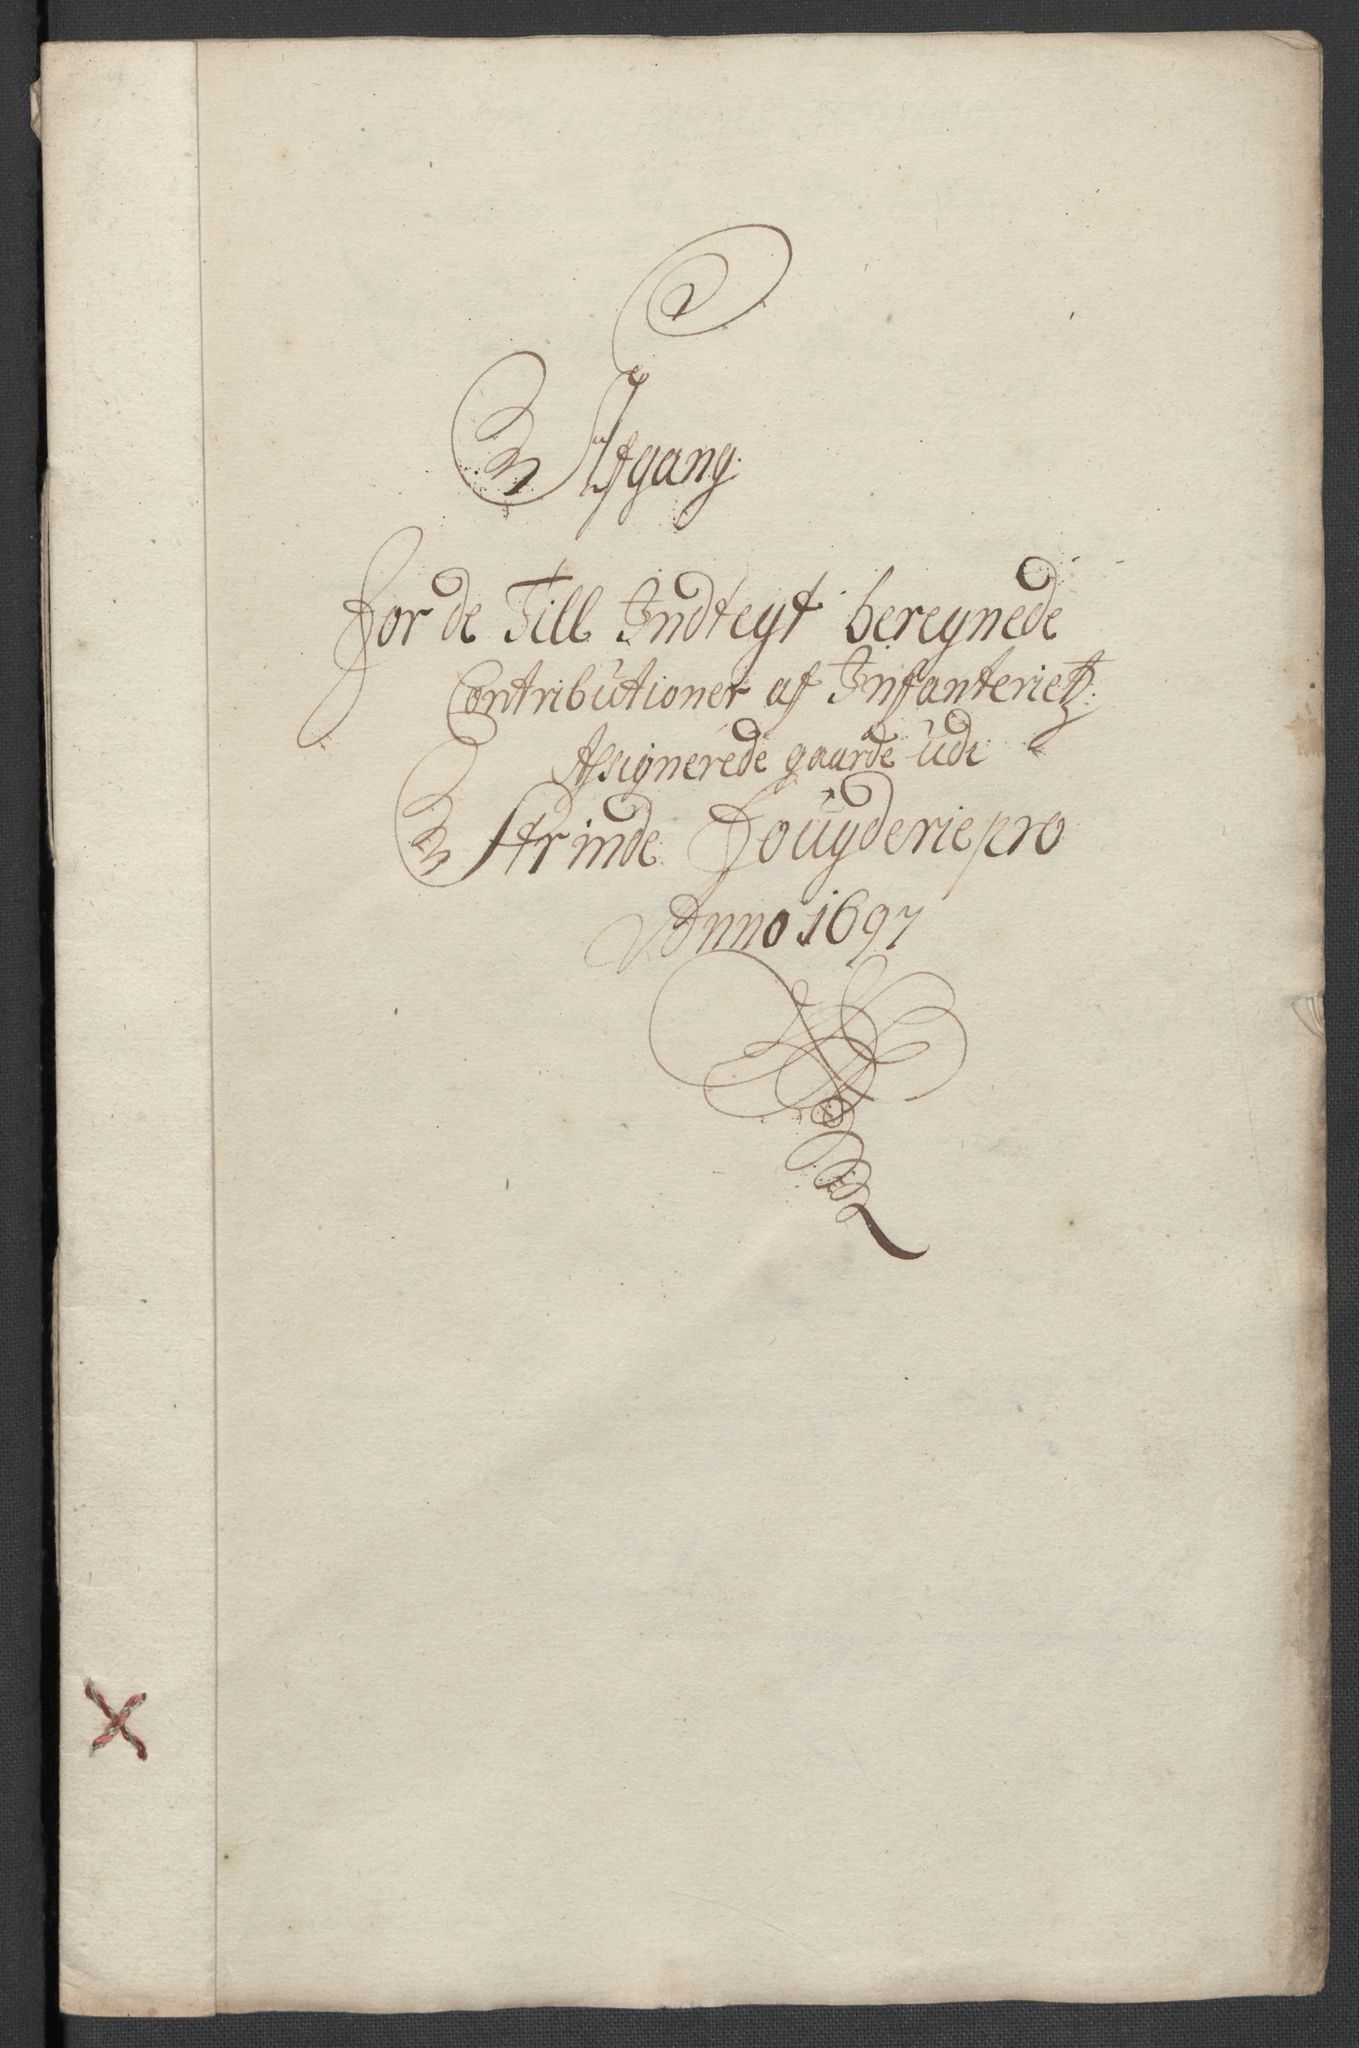 Afgang
for de Till Indtegt beregnede
Contributioner af Infanterietz
Assignerede gaarde udi
Strinde Fougderie pro
Anno 1697